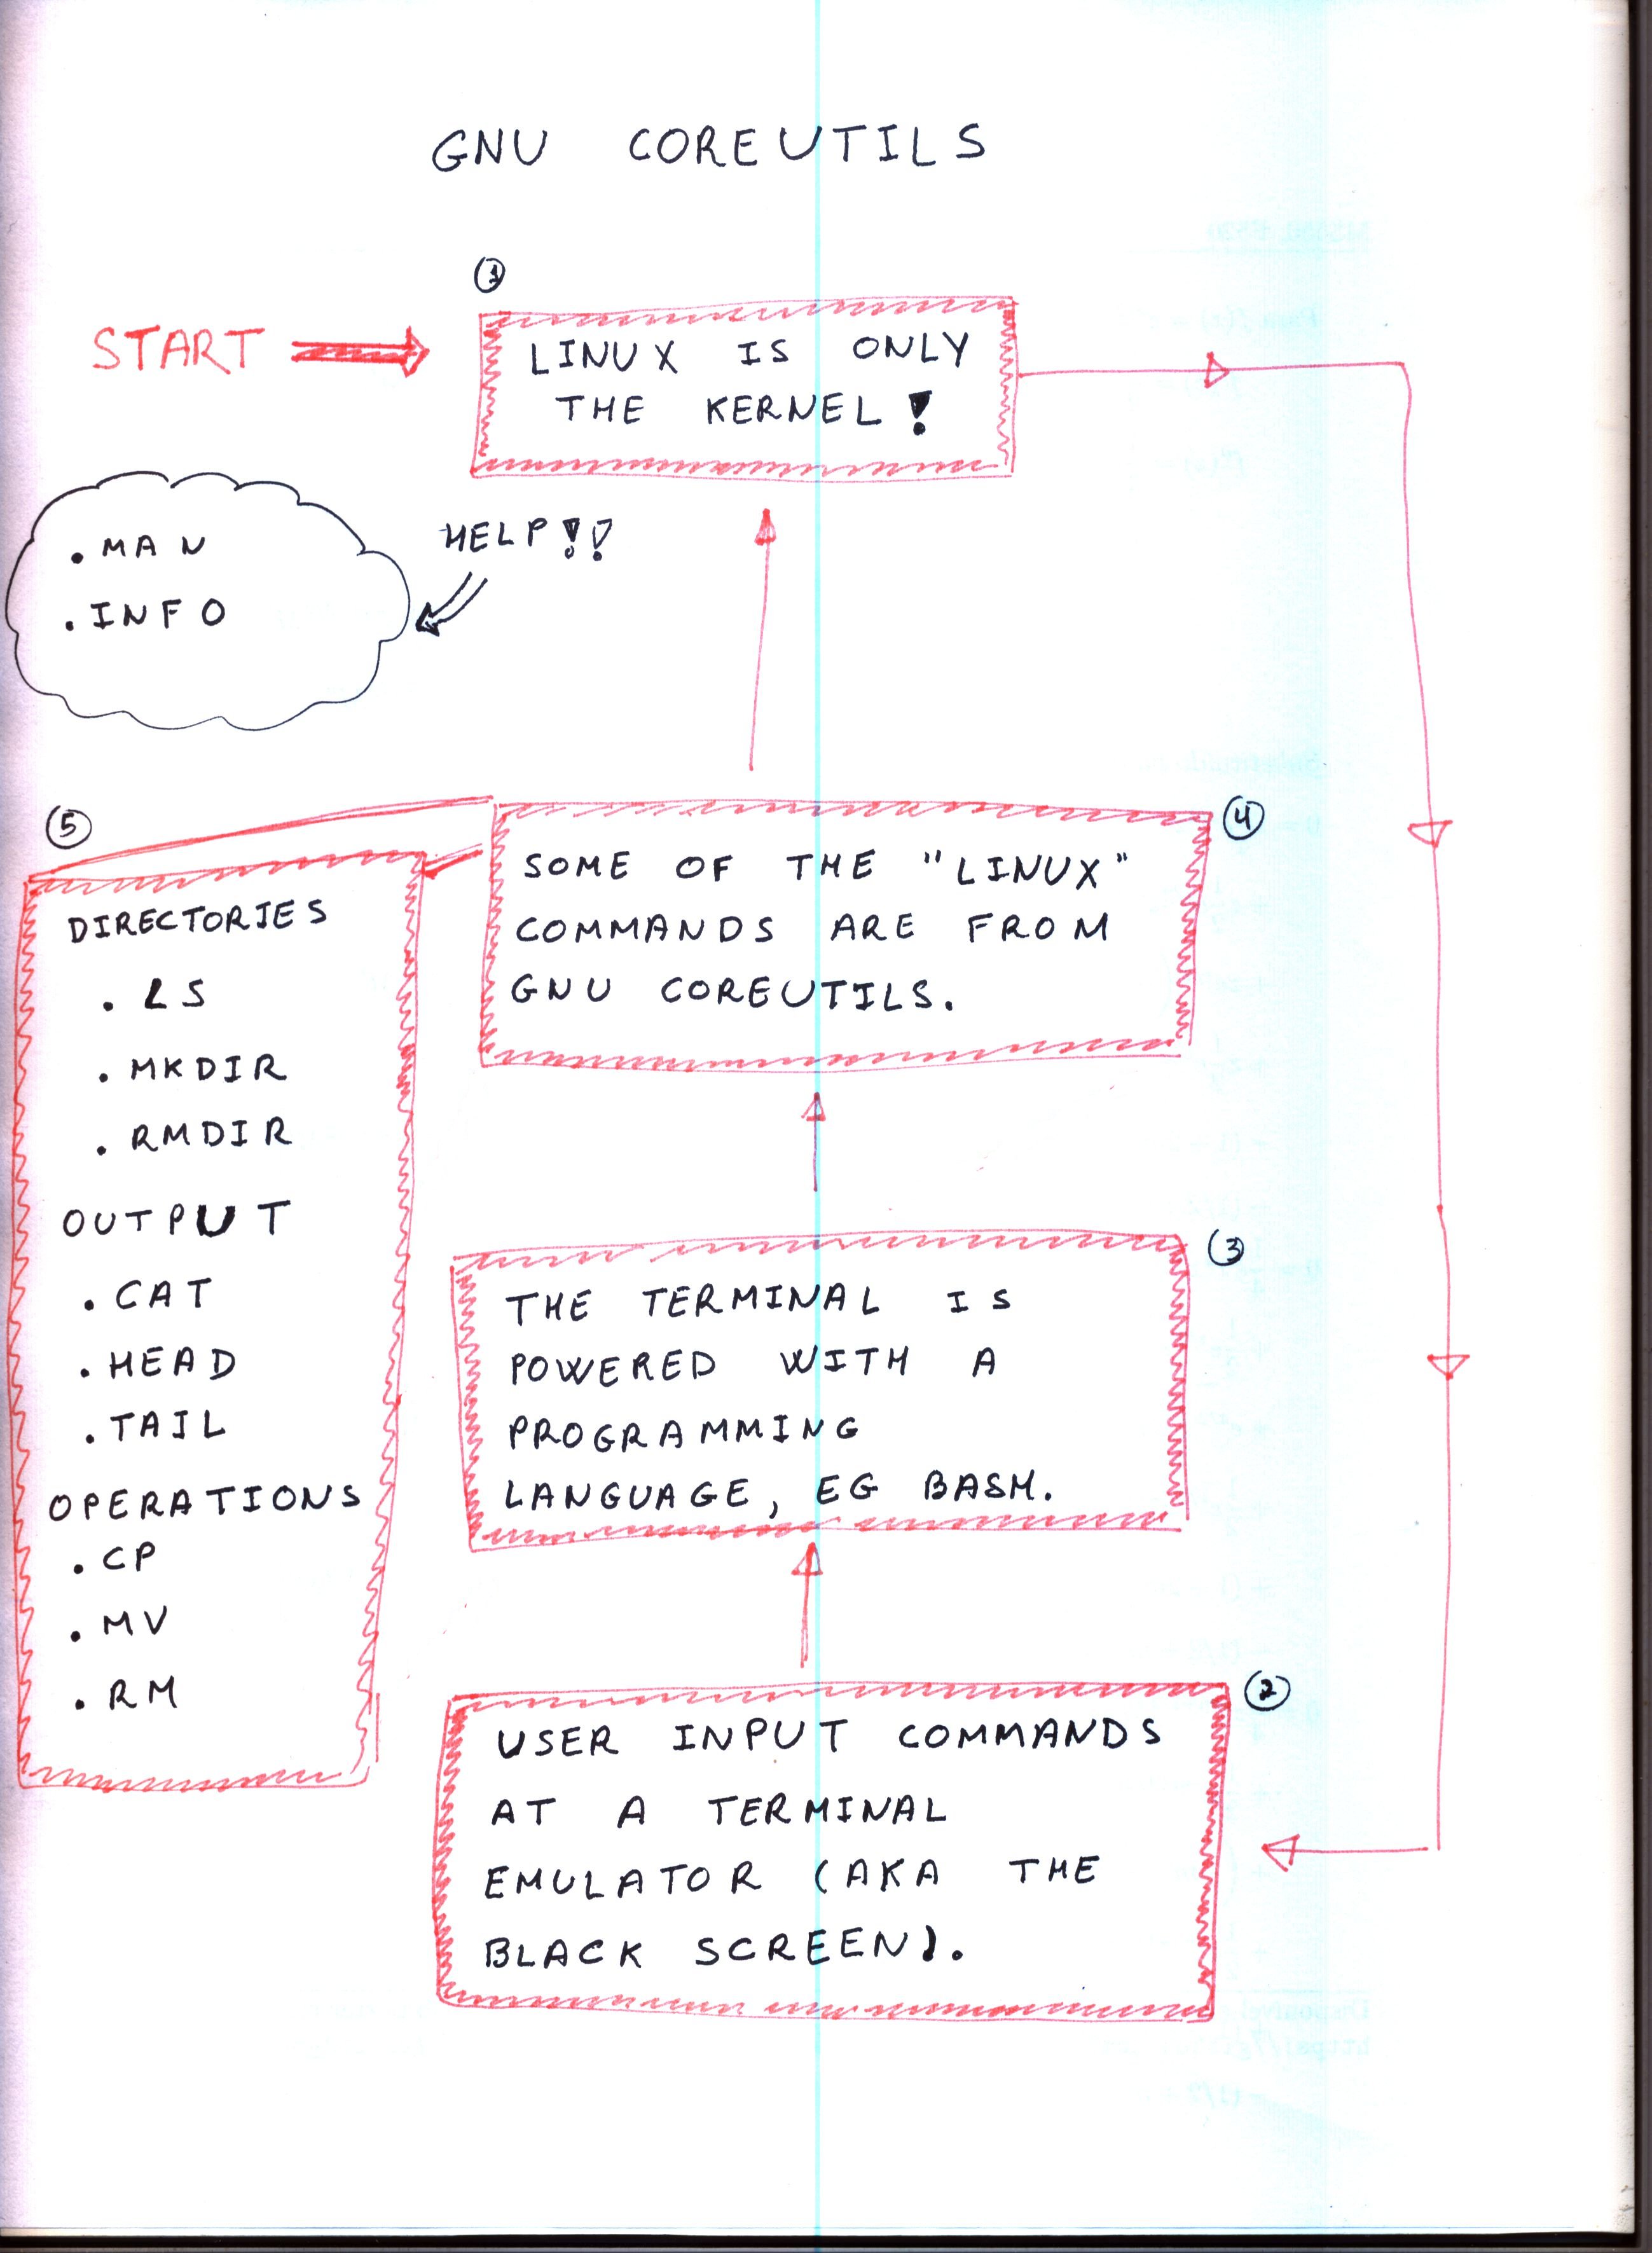 GNU COREUTILS
START
1
LINUX IS ONLY
THE KERNEL!
HELP!!
. MAN
. INFO
2
USER INPUT COMMANDS
AT A TERMINAL
EMULATOR (AKA THE
BLACK SCREEN).
3
THE TERMINAL IS
POWERED WITH A
PROGRAMMING
LANGUAGE, EG BASH.
4
SOME OF THE "LINUX"
COMMANDS ARE FROM
GNU COREUTILS.
5
DIRECTORIES
. LS
. MKDIR
. RMDIR
OUTPUT
. CAT
. HEAD
. TAIL
OPERATIONS
. CP
. MV
. RM